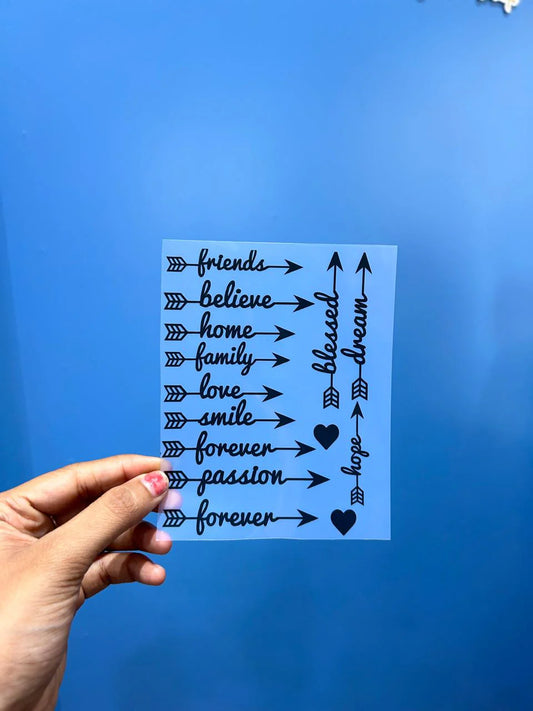 friends
believe
home
family
love
smile
forever
passion
forever
blessed
dream
hope